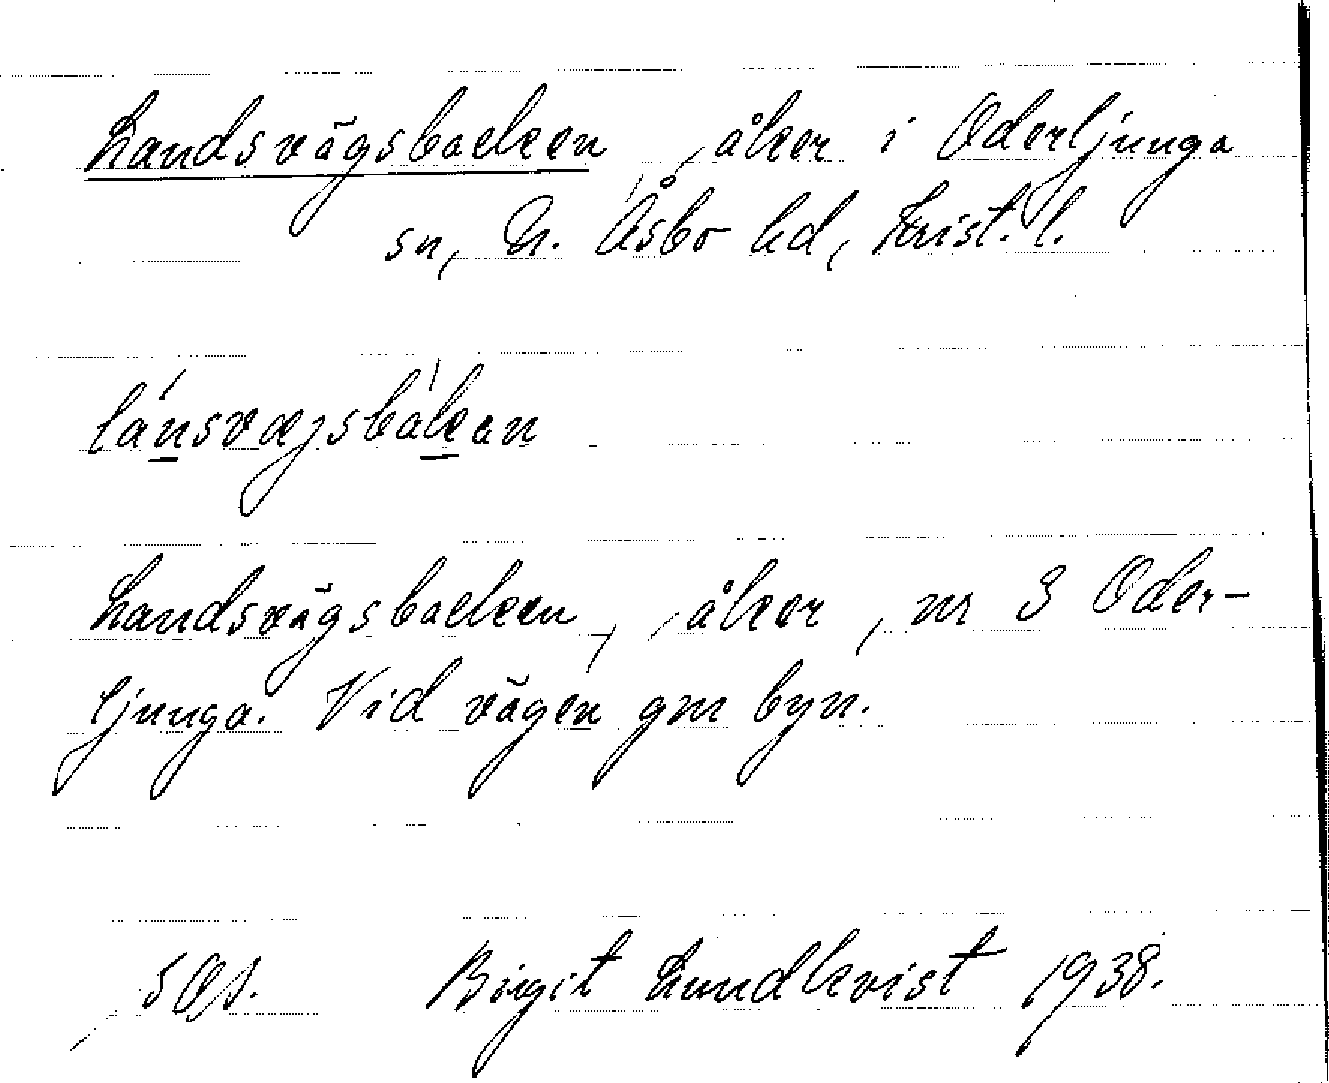 Landsvägsbacken, åker i Oderljunga
sn, N. Åsbo hd, Krist. l.
lánsvæjsbákan
Landsvägsbacken, åker, nr 3 Oder-
ljunga. Vid vägen gm byn.
Birgit Lundkvist 1938.